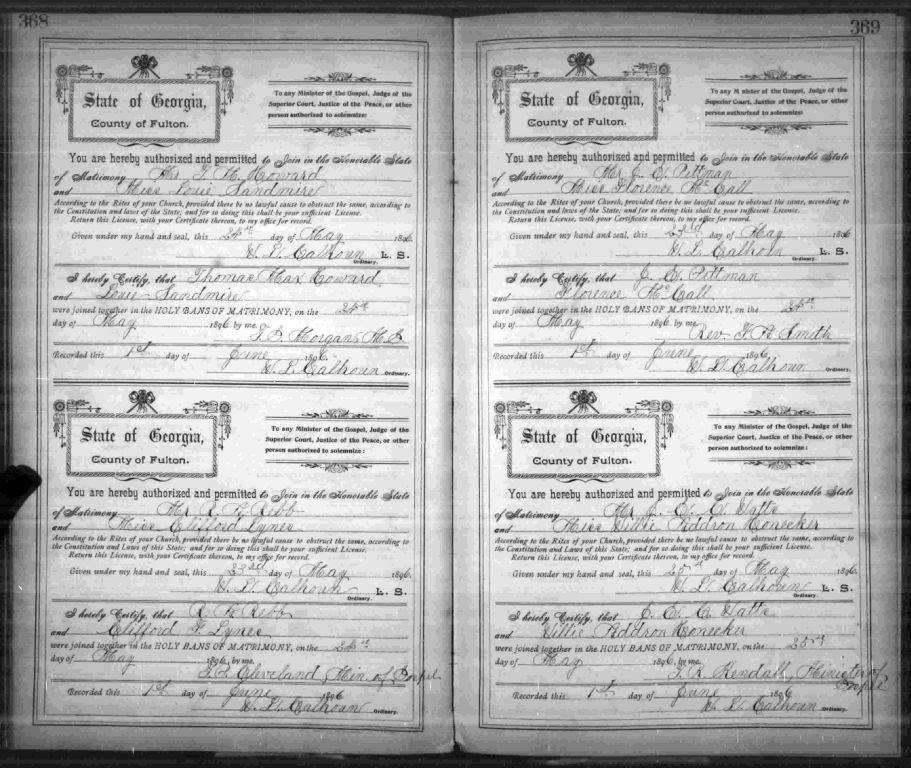 368
State of Georgia,
County of Fulton.
To any Minister of the Gospel, Judge of the
Superior Court, Justice of the Peace, or other
person authorized to solemnize:
You are hereby authorized and permitted to Join in the Honorable State
of Matrimony Mr. T. M. Howard
and Miss Louie Landmire
According to the Rites of your Church, provided there be no lawful cause to obstruct the same, according to
the Constitution and laws of the State; and for so doing this shall be your sufficient License.
Return this License, with your Certificate thereon, to my office for record.
Given under my hand and seal, this day of May 1896.
W. L. Calhoun L. S.
Ordinary.
I hereby Certify, that Thomas Max Howard
and Louie Landmire
were joined together in the HOLY BANS OF MATRIMONY, on the 24th
day of May 1896 by me
Morgan
Recorded this 1st day of June 1896.
W. L. Calhoun Ordinary.
State of Georgia,
County of Fulton.
To any Minister of the Gospel, Judge of the
Superior Court, Justice of the Peace, or other
person authorized to solemnize:
You are hereby authorized and permitted to Join in the Honorable State
of Matrimony Mr R. F. Webb
and Miss Clifford Lynes
According to the Rites of your Church, provided there be no lawful cause to obstruct the same, according to
the Constitution and Laws of this State; and for so doing this shall be your sufficient License.
Return this License, with your Certificate thereon, to my office for record.
Given under my hand and seal, this 23rd day of May 1896.
W. L. Calhoun L. S.
Ordinary.
I hereby Certify, that R. F. Webb
and Clifford F. Lynes
were joined together in the HOLY BANS OF MATRIMONY, on the 24th
day of May 1896, by me
Cleveland, Min. of Gospel
Recorded this 1st day of June 1896
W. L. Calhoun Ordinary.
369
State of Georgia,
County of Fulton.
To any Minister of the Gospel, Judge of the
Superior Court, Justice of the Peace, or other
person authorized to solemnize:
You are hereby authorized and permitted to Join in the Honorable State
of Matrimony Mr J. E. Pittman
and Miss Florence McCall
According to the Rites of your Church, provided there be no lawful cause to obstruct the same, according to
the Constitution and laws of this State; and for so doing this shall be your sufficient License.
Return this License, with your Certificate thereon, to my office for record.
Given under my hand and seal, this 23rd day of May 1896
W. L. Calhoun L. S.
Ordinary.
I hereby Certify, that J. E. Pittman
and Florence McCall
were joined together in the HOLY BANS OF MATRIMONY, on the 24th
day of May 1896, by me
Rev. Smith
Recorded this 1st day of June 1896.
W. L. Calhoun Ordinary.
State of Georgia,
County of Fulton.
To any Minister of the Gospel, Judge of the
Superior Court, Justice of the Peace, or other
person authorized to solemnize:
You are hereby authorized and permitted to Join in the Honorable State
of Matrimony Mr
and Miss Willie
According to the Rites of your Church, provided there be no lawful cause to obstruct the same, according to
the Constitution and Laws of this State; and for so doing this shall be your sufficient License.
Return this License, with your Certificate thereon, to my office for record.
Given under my hand and seal, this 25th day of May 1896.
W. L. Calhoun L. S.
Ordinary.
I hereby Certify, that
and Willie
were joined together in the HOLY BANS OF MATRIMONY, on the 25th
day of May 1896, by me
Kendall, Minister of
Gospel
Recorded this 1st day of June 1896
W. L. Calhoun Ordinary.